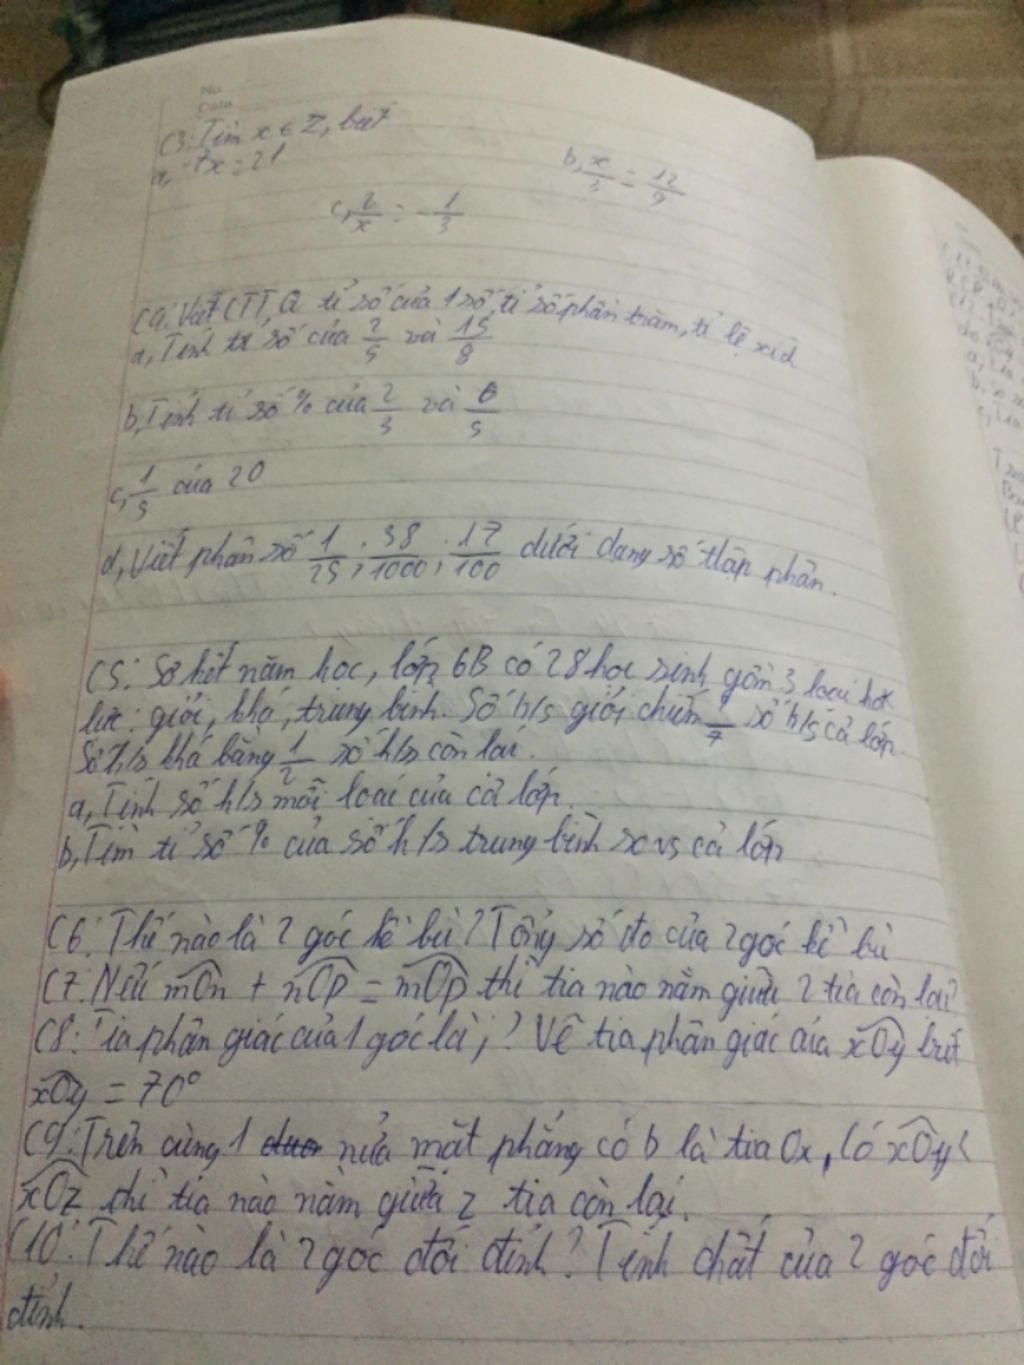 No
Date
C3: Tìm x ∈ Z, biết
a, -7x = 21
b, x/3 = 12/9
c, 2/x = -1/3
C4: Viết CTTQ tỉ số của 1 số, tỉ số phần trăm, tỉ lệ xích
a, Tính tỉ số của 2/5 và 15/8
b, Tính tỉ số % của 2/3 và 6/5
c, 1/5 của 20
d, Viết phân số 1/25; 38/1000; 17/100 dưới dạng số thập phân.
C5: Sơ kết năm học, lớp 6B có 28 học sinh gồm 3 loại học
lực: giỏi, khá, trung bình. Số h/s giỏi chiếm 1/7 số h/s cả lớp.
Số h/s khá bằng 1/2 số h/s còn lại.
a, Tính số h/s mỗi loại của cả lớp.
b, Tìm tỉ số % của số h/s trung bình so vs cả lớp
C6: Thế nào là 2 góc kề bù? Tổng số đo của 2 góc kề bù
C7: Nếu mOn + nOp = mOp thì tia nào nằm giữa 2 tia còn lại?
C8: Tia phân giác của 1 góc là j? Vẽ tia phân giác của xOy biết
xOy = 70°
C9: Trên cùng 1 nửa mặt phẳng có b là tia Ox, có xOy <
xOz thì tia nào nằm giữa 2 tia còn lại.
C10: Thế nào là 2 góc đối đỉnh? Tính chất của 2 góc đối
đỉnh.